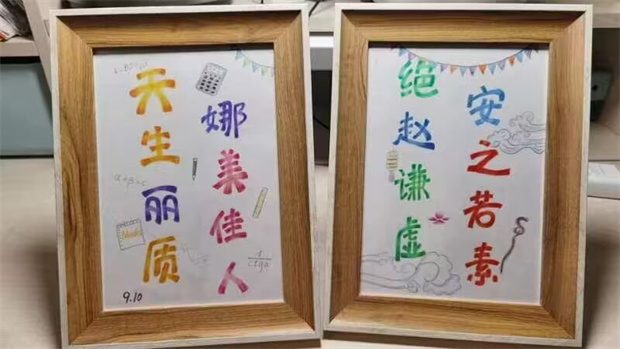 天生丽质
娜美佳人
9.10
绝赵谦虚
安之若素